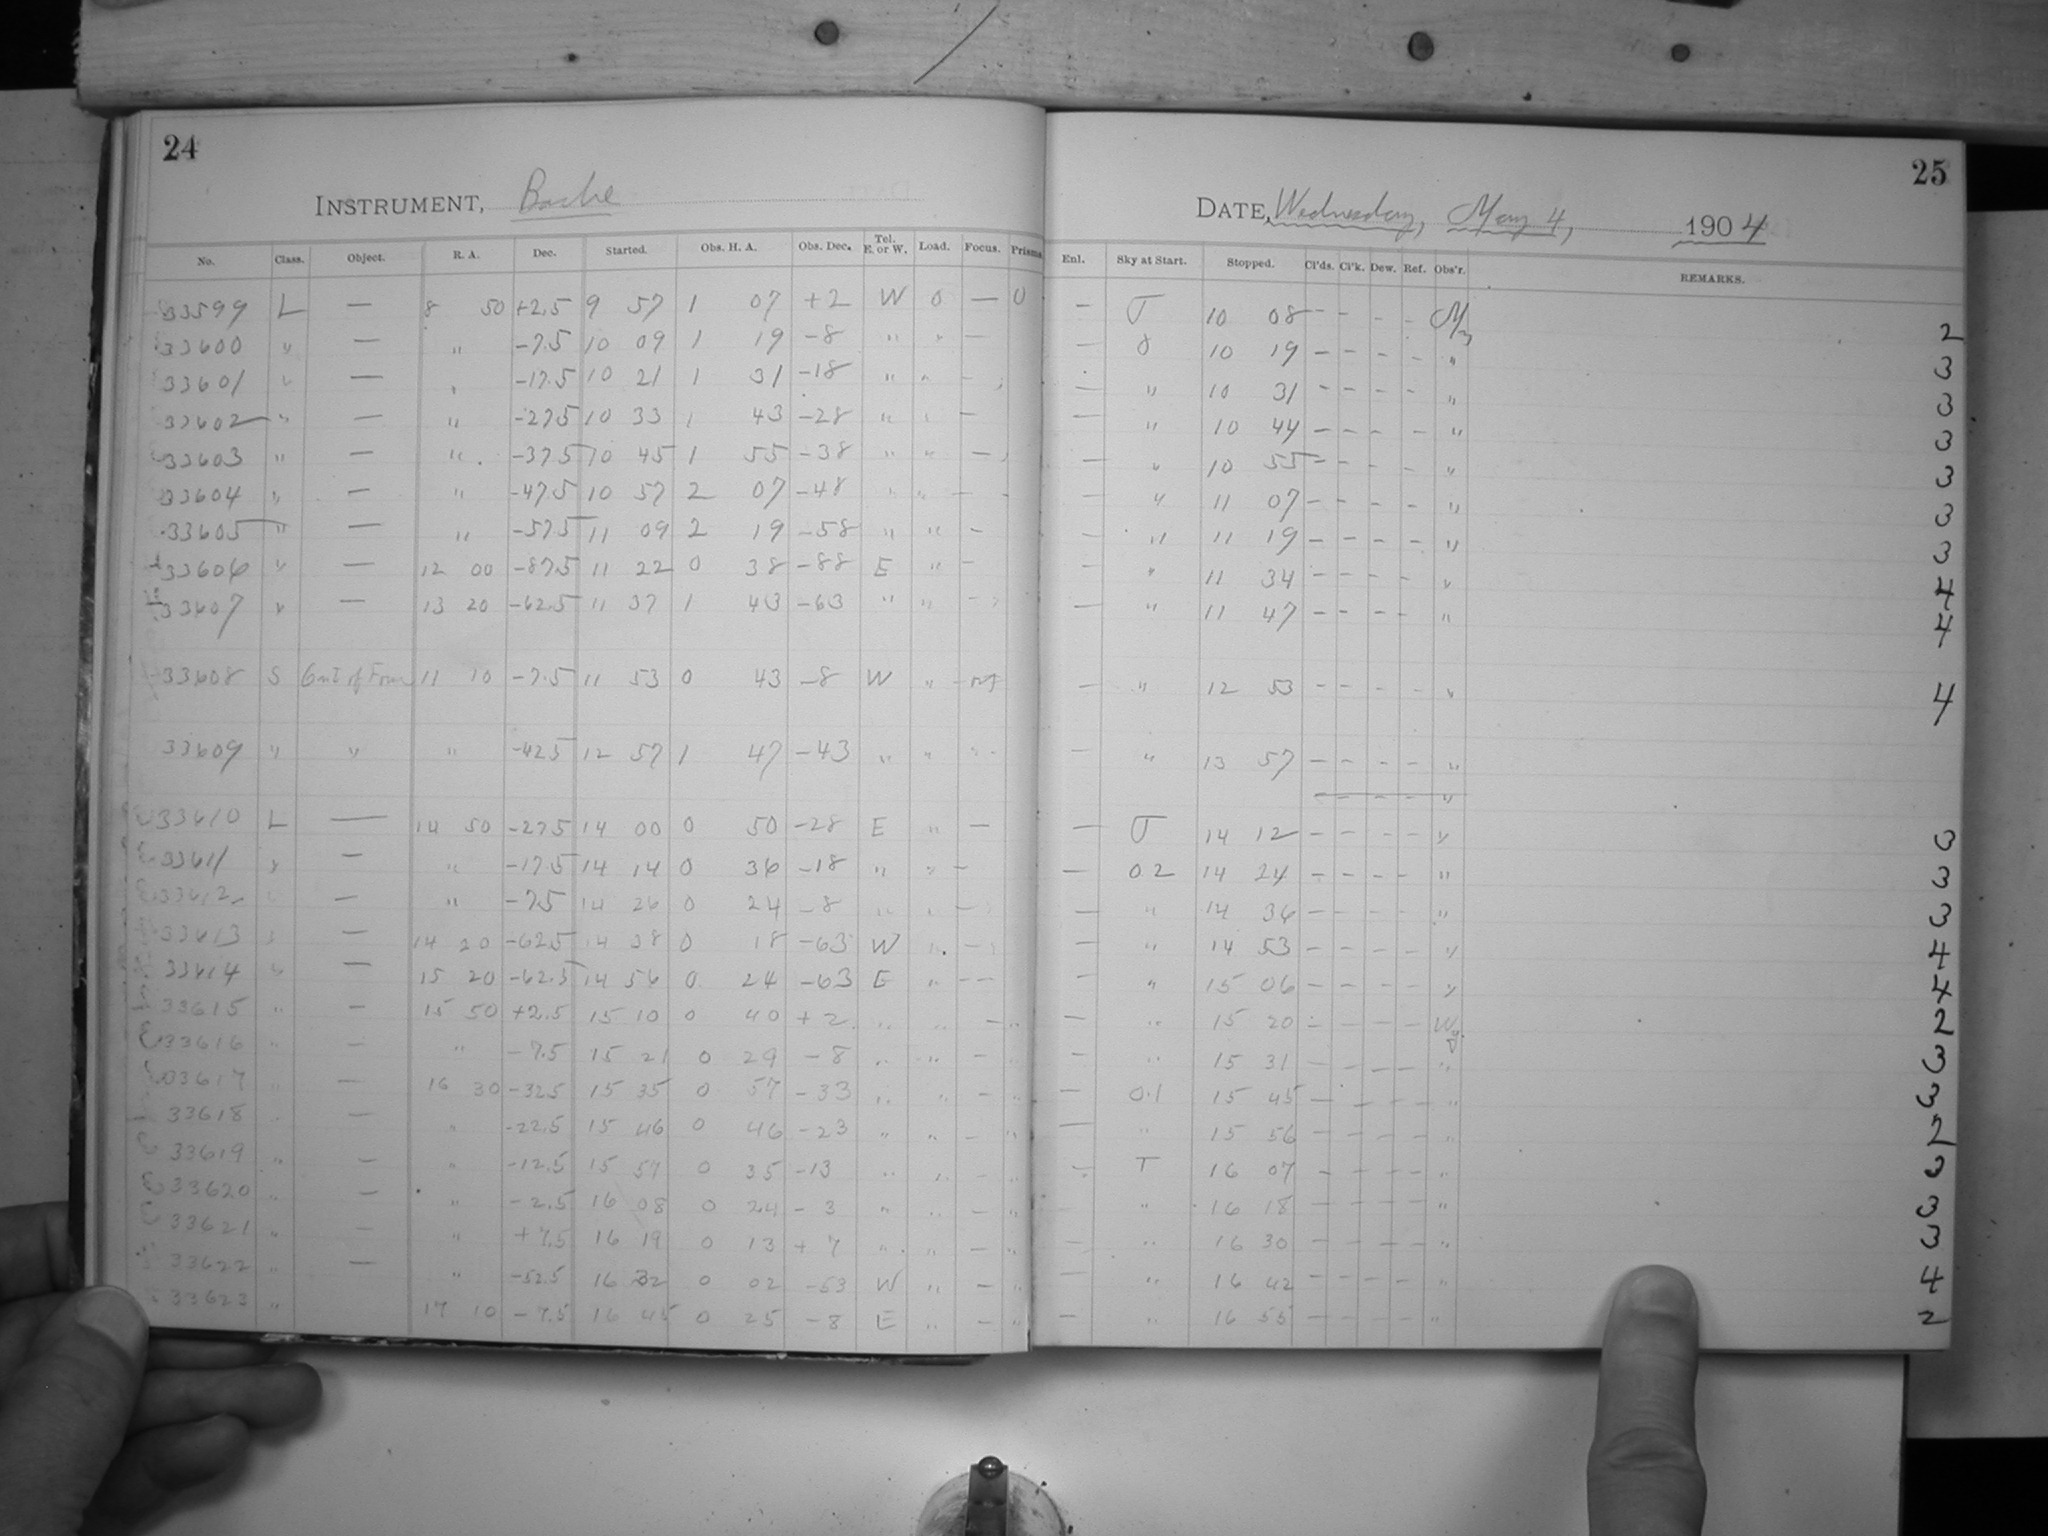 24
INSTRUMENT, Bache
No. Class. Object. R. A. Dec. Started. Obs. H. A. Obs. Dec. Tel. E. or W. Load. Focus. Prisms.
33599 L — 8 50 +2.5 9 57 1 07 +2 W 0 — 0
33600 " — " -7.5 10 09 1 19 -8 " " —
33601 " — " -17.5 10 21 1 31 -18 " " -
33602 " — " -27.5 10 33 1 43 -28 " " —
33603 " — " -37.5 10 45 1 55 -38 " " —
33604 " — " -47.5 10 57 2 07 -48 " " — -
33605 " — " -57.5 11 09 2 19 -58 " " —
33606 " — 12 00 -87.5 11 22 0 38 -88 E " —
33607 " — 13 20 -62.5 11 37 1 43 -63 " " -
33608 S Out of Focus 11 10 -7.5 11 53 0 43 -8 W " —
33609 " " " -42.5 12 57 1 47 -43 " " - -
33610 L — 14 50 -27.5 14 00 0 50 -28 E " —
33611 " — " -17.5 14 14 0 36 -18 " " —
33612 " — " -7.5 14 26 0 24 -8 " " —
33613 " — 14 20 -62.5 14 38 0 18 -63 W " -
33614 " — 15 20 -62.5 14 56 0 24 -63 E " — —
33615 " — 15 50 +2.5 15 10 0 40 +2 " " — "
33616 " — " -7.5 15 21 0 29 -8 " " — "
03617 " — 16 30 -32.5 15 35 0 57 -33 " " — "
33618 " — " -22.5 15 46 0 46 -23 " " — "
33619 " — " -12.5 15 57 0 35 -13 " " — "
33620 " — " -2.5 16 08 0 24 -3 " " — "
33621 " — " +7.5 16 19 0 13 +7 " " — "
33622 " — " -52.5 16 32 0 02 -53 W " — "
33623 " 17 10 -7.5 16 45 0 25 -8 E " — "
25
DATE, Wednesday, May 4, 1904
Enl. Sky at Start. Stopped. Cl'ds. Cl'k. Dew. Ref. Obs'r. REMARKS.
— 10 08 - - - - 2
— 10 19 - - - - " 3
— " 10 31 - - - - " 3
— " 10 44 - - - - " 3
— " 10 55 - - - - " 3
— " 11 07 - - - - " 3
— " 11 19 - - - - " 3
— " 11 34 - - - - " 4
— " 11 47 - - - - " 4
— " 12 53 - - - - " 4
— " 13 57 - - - - "
- - - - "
— 14 12 - - - - " 3
— 0.2 14 24 - - - - " 3
— " 14 36 - - - - " 3
— " 14 53 - - - - " 4
— " 15 06 - - - - " 4
— " 15 20 - - - - 2
— " 15 31 - - - - " 3
— 0.1 15 45 - - - - " 3
— " 15 56 - - - - " 2
— T 16 07 - - - - " 3
— " 16 18 - - - - " 3
— " 16 30 - - - - " 3
— " 16 42 - - - - " 4
— " 16 55 - - - - " 2